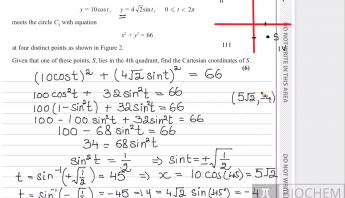 x = 10cos t, y = 4√2 sin t, 0 ⩽ t < 2π
meets the circle C₂ with equation
x² + y² = 66
at four distinct points as shown in Figure 2.
Given that one of these points, S, lies in the 4th quadrant, find the Cartesian coordinates of S.
(6)
• S
III
IV
DO NOT WRITE IN THIS AREA
(10cost)² + (4√2 sint)² = 66
100cos²t + 32sin²t = 66
(5√2, -4)
100(1-sin²t) + 32sin²t = 66
100 - 100sin²t + 32sin²t = 66
100 - 68sin²t = 66
34 = 68sin²t
sin²t = 1/2 ⇒ sint = ±√1/2
t = sin⁻¹(+√1/2) = 45° ⇒ x = 10cos(45) = 5√2
t = sin⁻¹(-√1/2) = -45 ⇒ y = 4√2 sin(45°) = -4
BIOCHEM